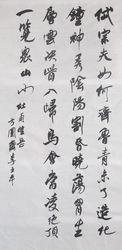 岱宗夫如何齊魯青未了造化
鐘神秀陰陽割昏曉蕩胸生
層雲決眥入歸鳥會當凌絕頂
一覽衆山小
杜甫望岳